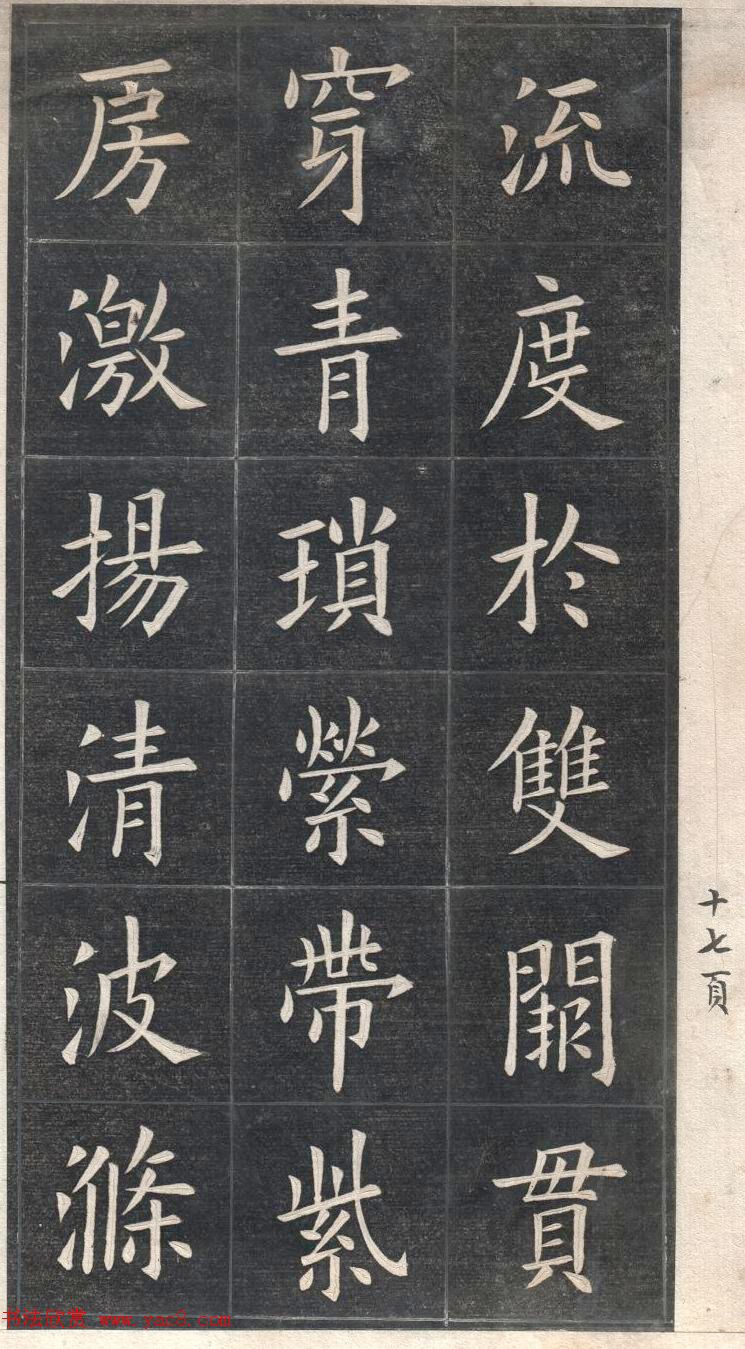 流度於雙闕貫
穿青瑣縈帶紫
房激揚清波滌
十七頁
书法欣赏 www.yac8.com